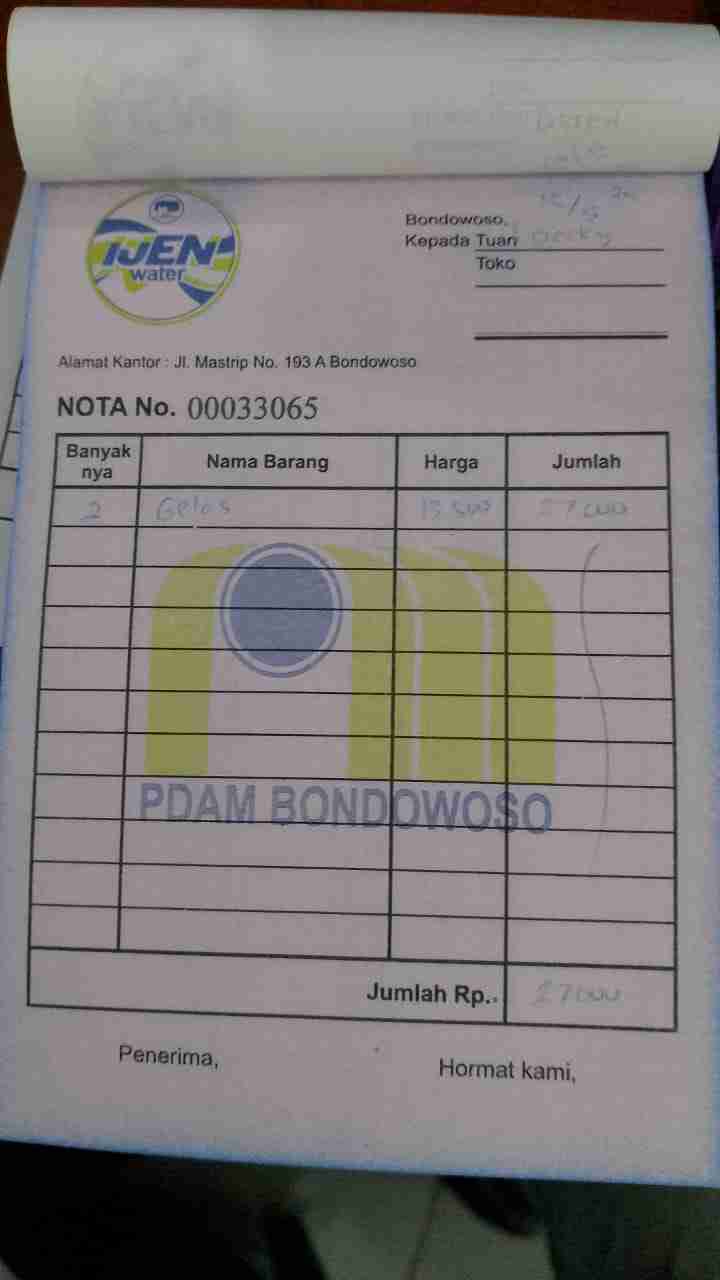 IJEN
water
Bondowoso,
Kepada Tuan
Toko
Alamat Kantor : Jl. Mastrip No. 193 A Bondowoso
NOTA No. 00033065
Banyak nya Nama Barang Harga Jumlah
2 Gelas 13 500 27 000
PDAM BONDOWOSO
Jumlah Rp.. 27 000
Penerima, Hormat kami,